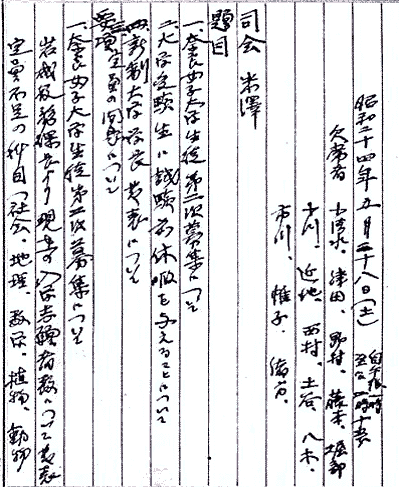 昭和二十四年五月二十八日(土) 自午後一時
欠席者 清水、津田、野村、藤本、堀部
市川、近地、西村、土谷、八木、
市川、雅子、緒方、
司会 米澤
題目
一、奈良女子大学生徒第二次募集について
二、大学受験生に試験前休暇を与えることについて
四、新制大学学長発表について
要項
定員の問題について
一、奈良女子大学生徒第二次募集について
岩城教務課長より現在の入学志願者数について発表
定員不足の科目(社会、地理、数学、植物、動物